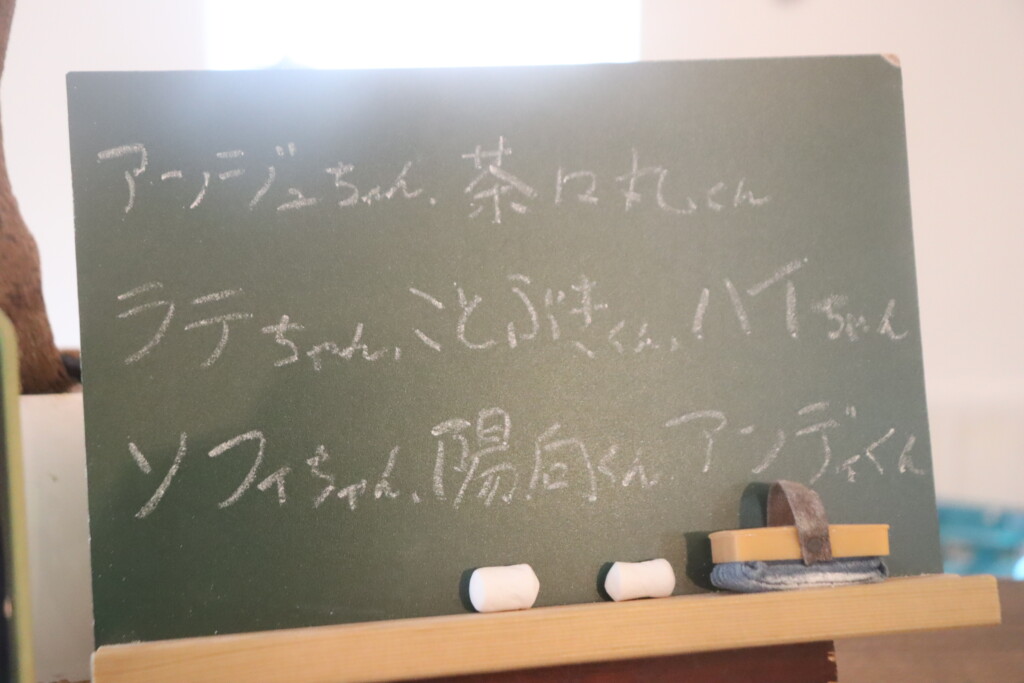 アンジュちゃん、茶口丸くん
ラテちゃん、ことぶきくん、ハイちゃん
ソフィちゃん、陽向くん、アンディくん